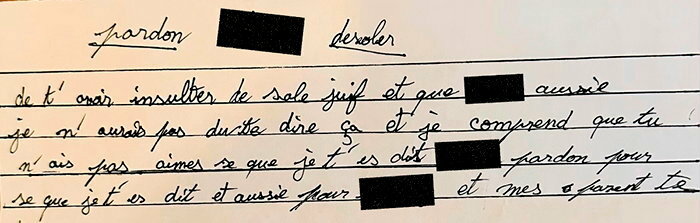 pardon desoler
de t'avoir insulter de sale juif et que aussie
je n'aurais pas du te dire ça et je comprend que tu
n'ais pas aimes se que je t'es dit pardon pour
se que je t'es dit et aussie pour et mes parent te